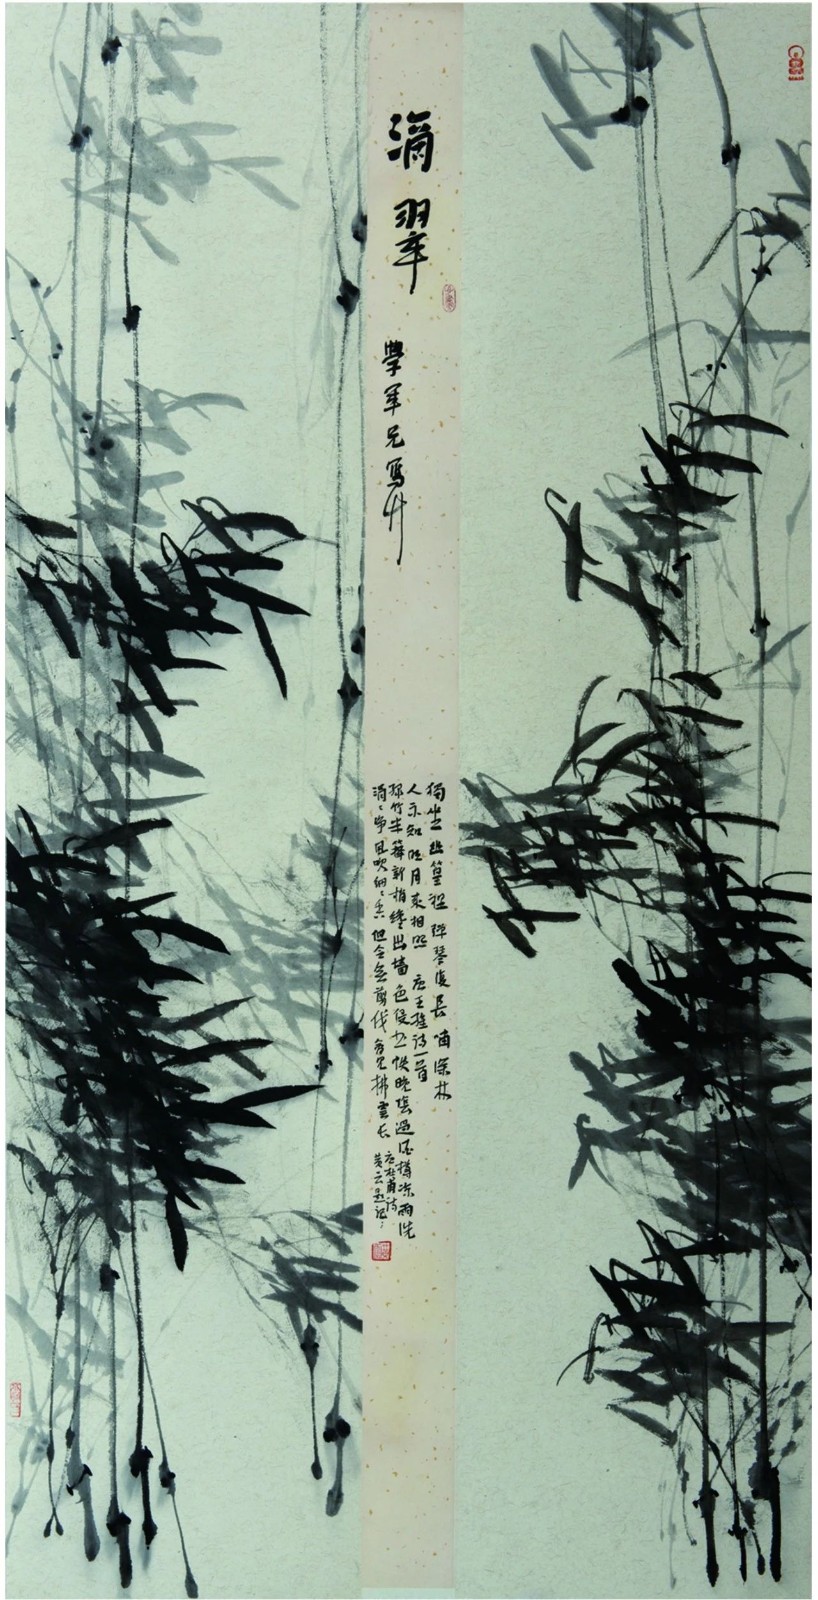 滴翠
學軍兄寫竹
獨坐幽篁裡彈琴復長嘯深林
人不知明月來相照 唐王維詩一首
綠竹半籜新梢纔出墻色侵書帙晚陰過酒樽凉雨洗
涓〻净風吹細〻香但令無剪伐會見拂雲長 唐杜甫詩
黄云題記